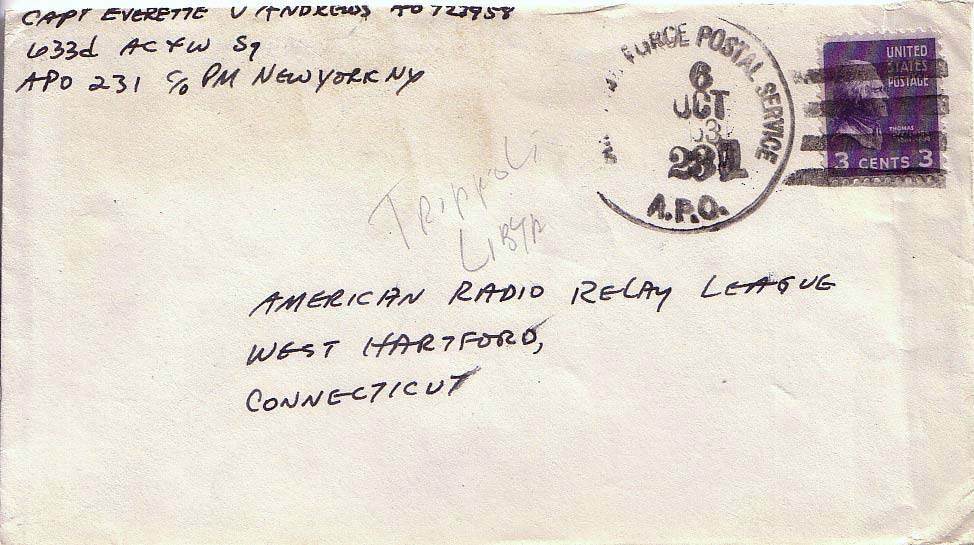 CAPT EVERETTE V ANDREWS AO 723958
633d AC&W Sq
APO 231 c/o PM NEW YORK NY
FORCE POSTAL SERVICE
6
OCT
231
A.P.O.
UNITED
STATES
POSTAGE
THOMAS
3 CENTS 3
TRIPPOLI
LIBYA
AMERICAN RADIO RELAY LEAGUE
WEST HARTFORD,
CONNECTICUT